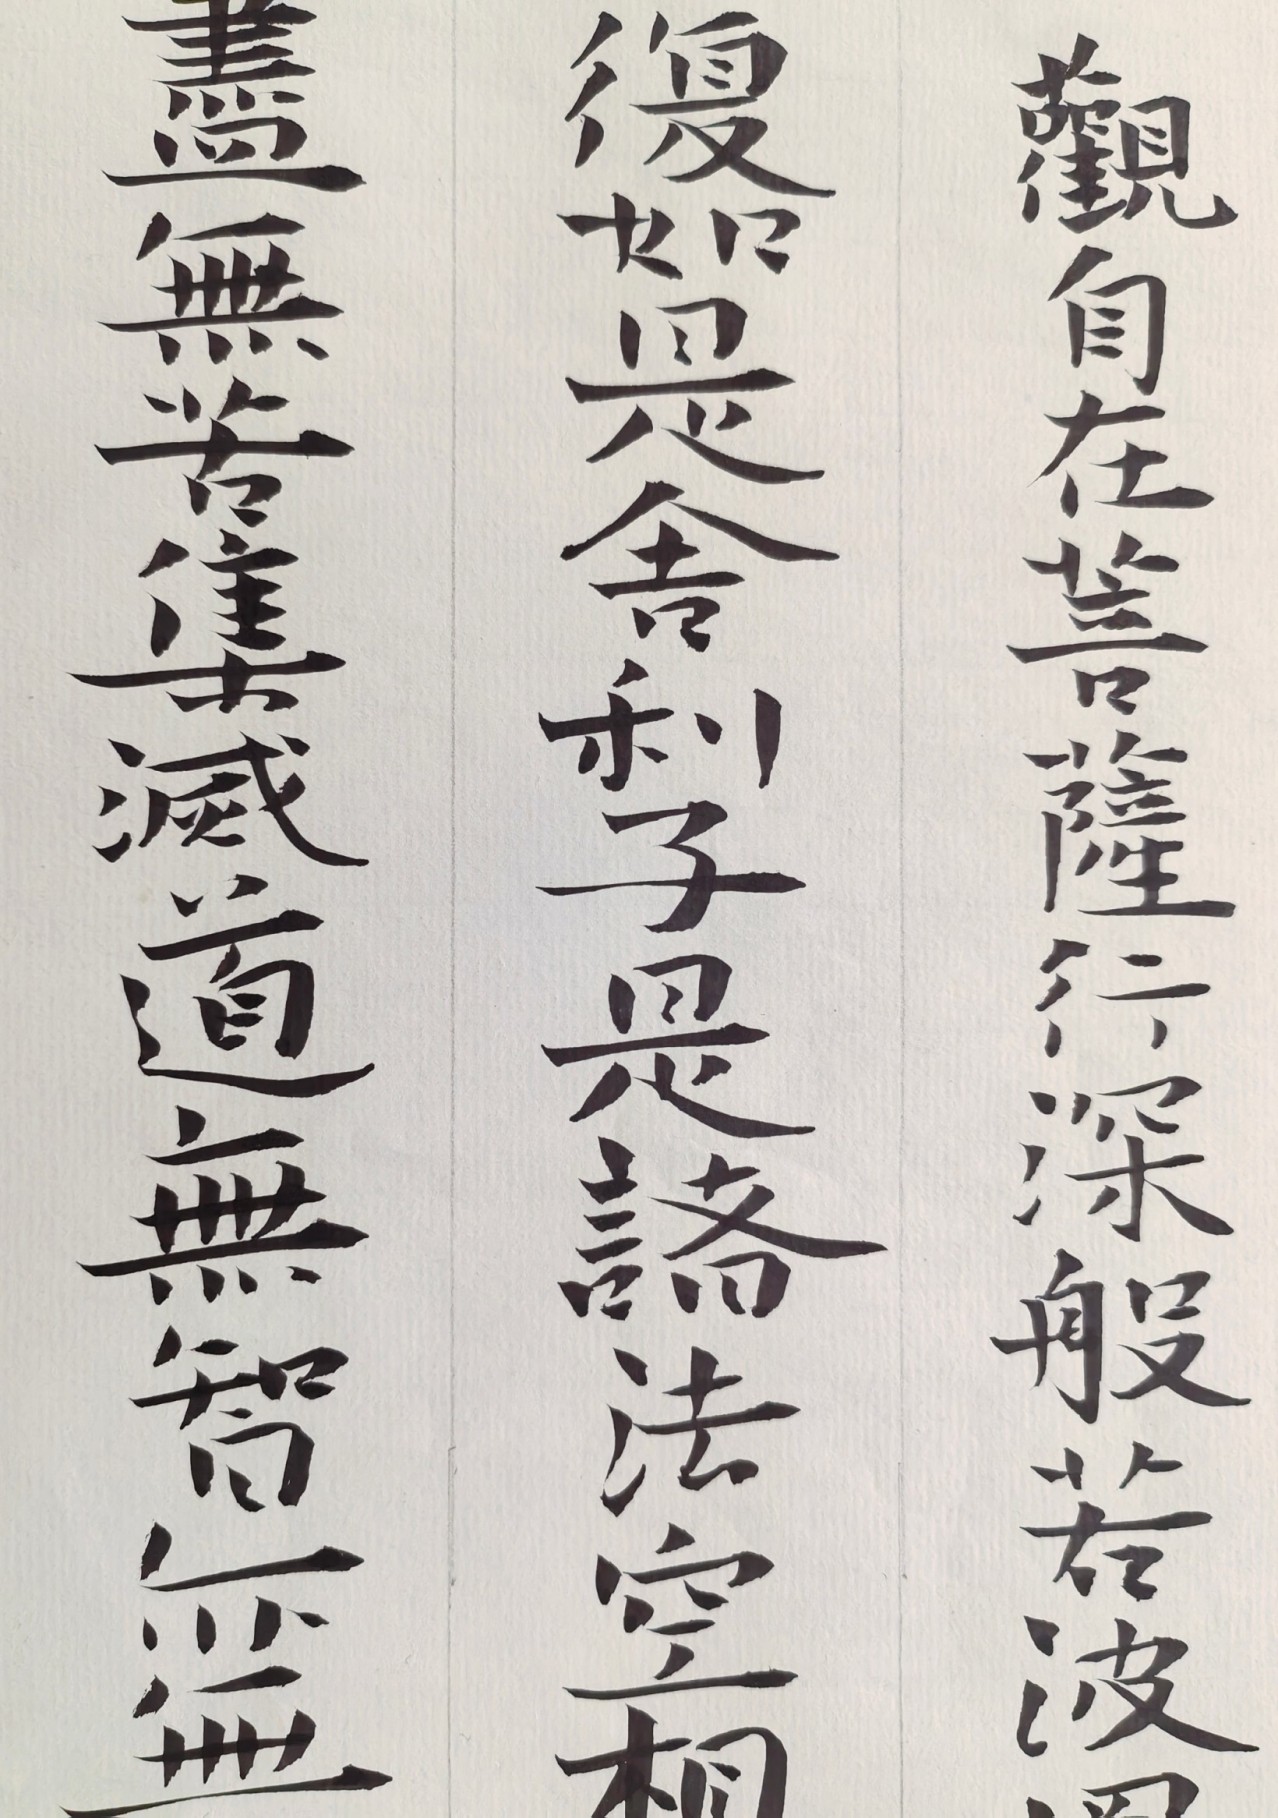 觀自在菩薩行深般若波
復如是舍利子是諸法空相
盡無苦集滅道無智亦無